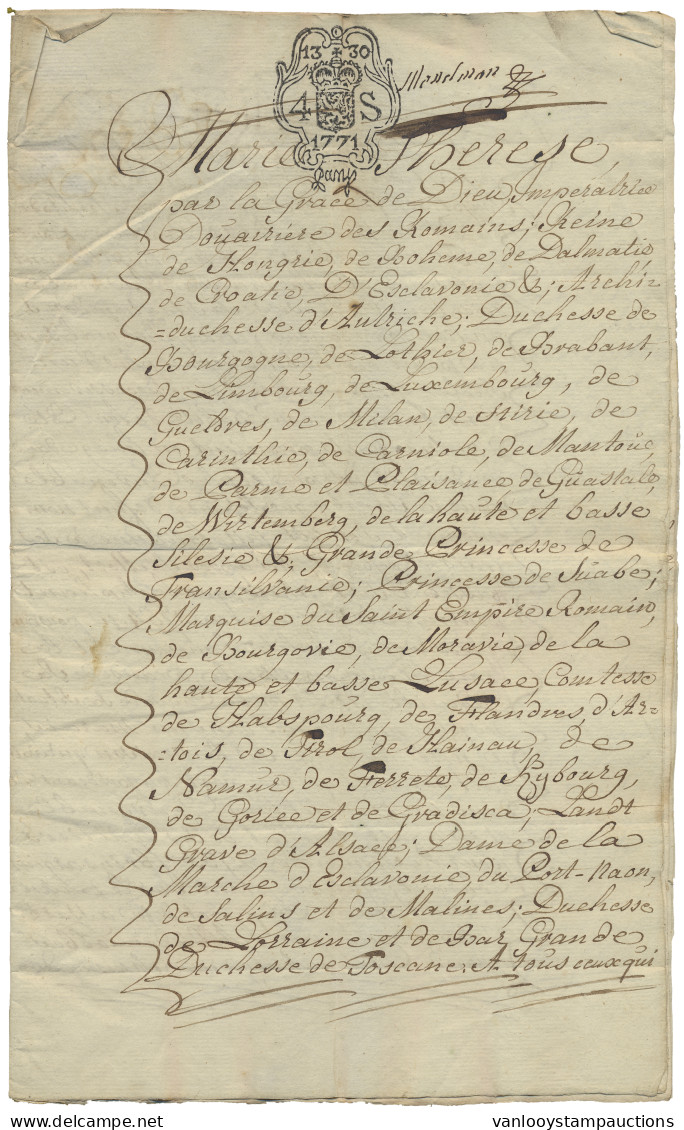 13 30
4 S
1771
Marie Therese,
par la Grace de Dieu, Imperatrice
Douairiere des Romains; Reine
de Hongrie, de Boheme, de Dalmatie
de Croatie, D'Esclavonie &; Archi-
=duchesse d'Autriche; Duchesse de
Bourgogne, de Lothier, de Brabant,
de Limbourg, de Luxembourg, de
Gueldres, de Milan, de Stirie, de
Carinthie, de Carniole, de Mantoue,
de Parme et Plaisance, de Guastale,
de Wirtemberg, de la haute et basse
Silesie &. Grande Princesse de
Transilvanie; Princesse de Suabe;
Marquise du Saint Empire Romain,
de Bourgovie, de Moravie, de la
haute et basse Lusace, Comtesse
de Habspourg, de Flandres, d'Ar=
=tois, de Tirol, de Hainau, de
Namur, de Ferrete, de Kybourg,
de Gorice et de Gradisca; Landt
Grave d'Alsace; Dame de la
Marche d'Esclavonie, du Port-Naon,
de Salins et de Malines; Duchesse
de Lorraine et de Bar, Grande
Duchesse de Toscane. A tous ceux qui
delcampe.net
vanlooystampauctions